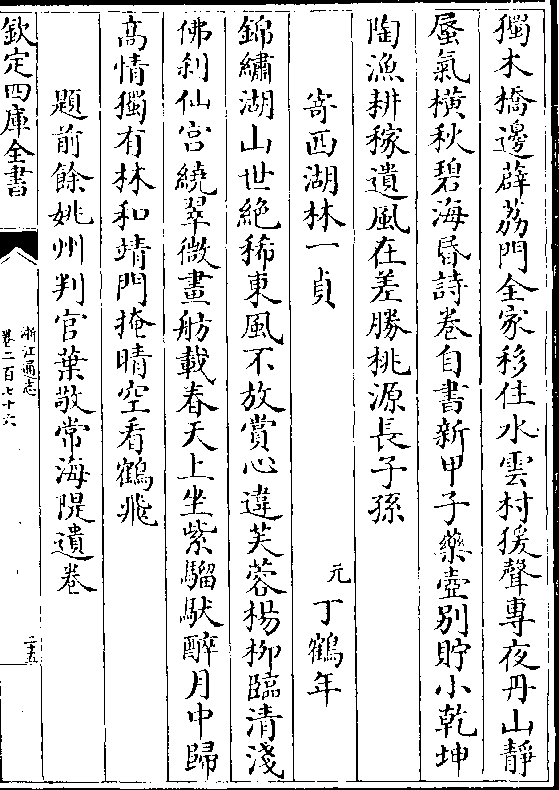 獨木橋邊薜荔門全家移住水雲村猨聲專夜丹山靜
蜃氣橫秋碧海昏詩卷自書新甲子藥壺別貯小乾坤
陶漁耕稼遺風在差勝桃源長子孫
寄西湖林一貞
元丁鶴年
錦繡湖山世絶稀東風不放賞心違芙蓉楊柳臨清淺
佛刹仙宫繞翠微畫舫載春天上坐紫騮馱醉月中歸
高情獨有林和靖門掩晴空看鶴飛
題前餘姚州判官葉敬常海隄遺卷
欽定四庫全書
浙江通志
卷二百七十六
二五